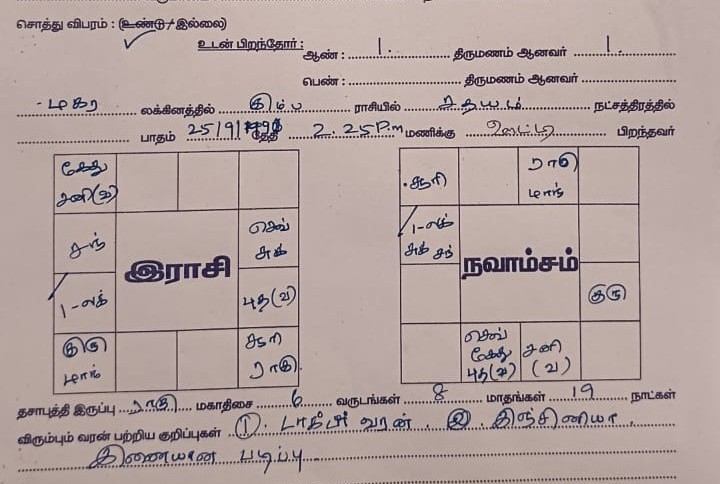 சொத்து விபரம் : (உண்டு / இல்லை)
உடன் பிறந்தோர் : ஆண் : 1. திருமணம் ஆனவர் 1.
பெண் : திருமணம் ஆனவர்
மகர லக்கினத்தில் கும்ப ராசியில் சதயம் நட்சத்திரத்தில்
பாதம் 25/9/ தேதி 2.25 P.m மணிக்கு பிறந்தவர்
கேது
சனி(வ)
சந்
1-லக்
குரு
மாந்
செவ்
சுக்
புத(வ)
சூரி
ராகு
இராசி
சூரி
ராகு
மாந்
1-லக்
சுக் சந்
நவாம்சம்
குரு
செவ்
கேது
புத(வ)
சனி
(வ)
தசாபுத்தி இருப்பு ராகு மகாதிசை 6 வருடங்கள் 8 மாதங்கள் 19 நாட்கள்
விரும்பும் வரன் பற்றிய குறிப்புகள் 1. டாக்டர் வரன். 2. இஞ்சினியர்.
இணையான படிப்பு